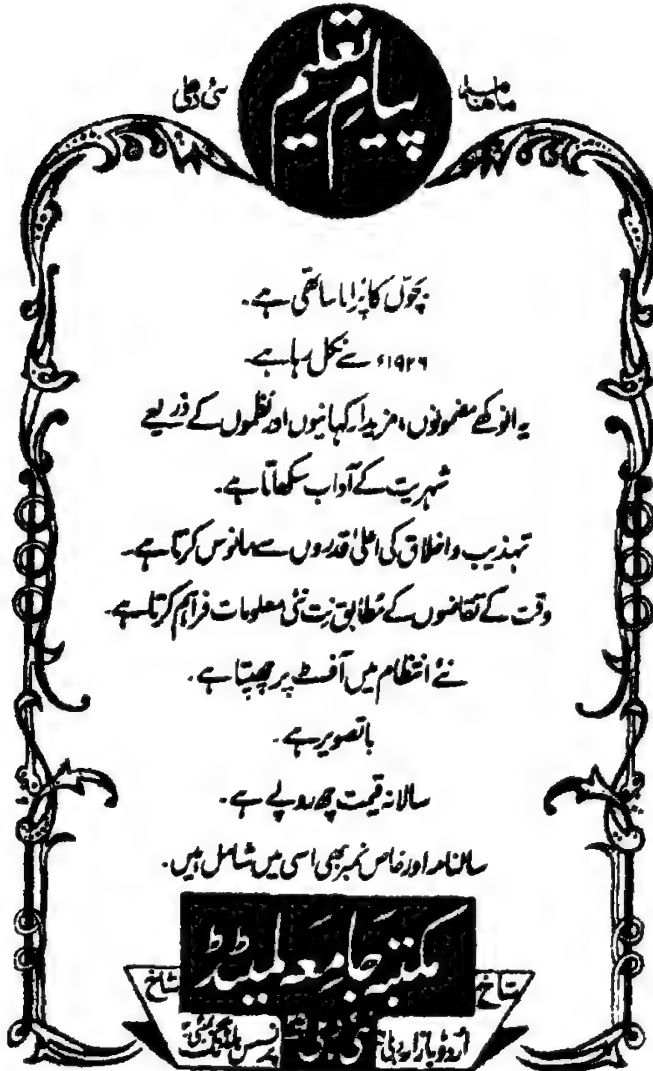 ماہنامہ پیامِ تعلیم نئی دہلی
بچّوں کا پُرانا ساتھی ہے۔
۱۹۲۶ء سے نکل رہا ہے۔
یہ انوکھے مضمونوں، مزیدار کہانیوں اور نظموں کے ذریعے
شہریت کے آداب سکھاتا ہے۔
تہذیب و اخلاق کی اعلیٰ قدروں سے مانوس کرتا ہے۔
وقت کے تقاضوں کے مُطابق نِت نئی معلومات فراہم کرتا ہے۔
نئے انتظام میں آفسٹ پر چھپتا ہے۔
باتصویر ہے۔
سالانہ قیمت چھ روپے ہے۔
سالنامہ اور خاص نمبر بھی اسی میں شامل ہیں۔
مکتبہ جَامِعَہ لمیٹڈ
شاخ
شاخ
اُردُو بازار دہلی
نئی دہلی
پرنسس بلڈنگ بمبئی